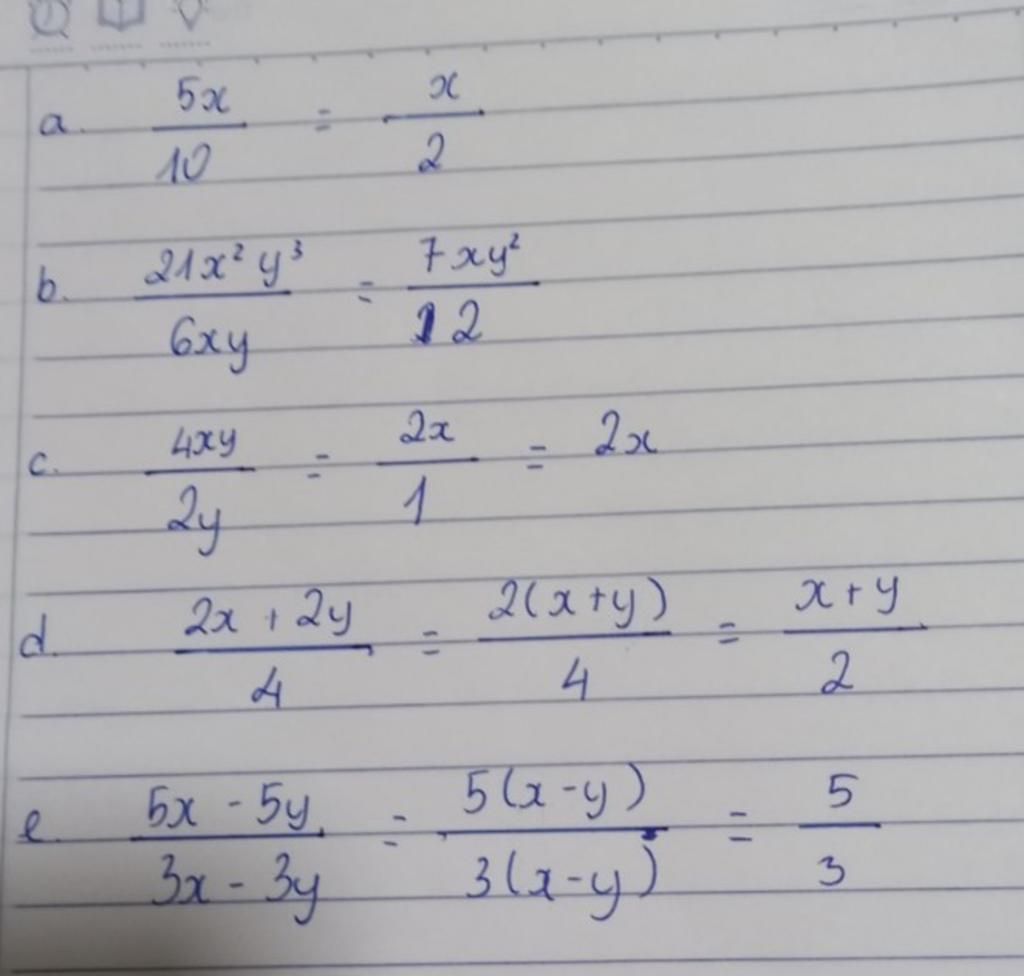 a. 5x/10 = x/2
b. 21x²y³/6xy = 7xy²/2
c. 4xy/2y = 2x/1 = 2x
d. 2x + 2y/4 = 2(x+y)/4 = x+y/2
e. 5x - 5y/3x - 3y = 5(x-y)/3(x-y) = 5/3